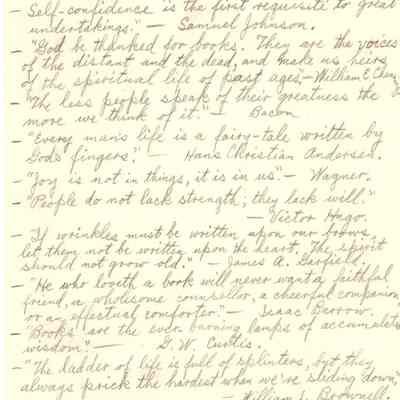 - Self-confidence is the first requisite to great
undertakings." - Samuel Johnson.
- "God be thanked for books. They are the voices
of the distant and the dead, and make us heirs
of the spiritual life of past ages - William E. Chan
- "The less people speak of their greatness the
more we think of it." - Bacon
- "Every man's life is a fairy-tale written by
God's fingers." - Hans Christian Andersen.
- "Joy is not in things, it is in us." - Wagner.
- "People do not lack strength; they lack will."
- Victor Hugo.
- "If wrinkles must be written upon our brows,
let them not be written upon the heart. The spirit
should not grow old." - James A. Garfield.
- "He who loveth a book will never want a faithful
friend, a wholesome counsellor, a cheerful companion,
or an effectual comforter." - Isaac Barrow.
- "Books are the ever burning lamps of accumulate
wisdom." - G. W. Curtis.
- "The ladder of life is full of splinters, but they
always prick the hardest when we're sliding down."
- William L. Brownell.